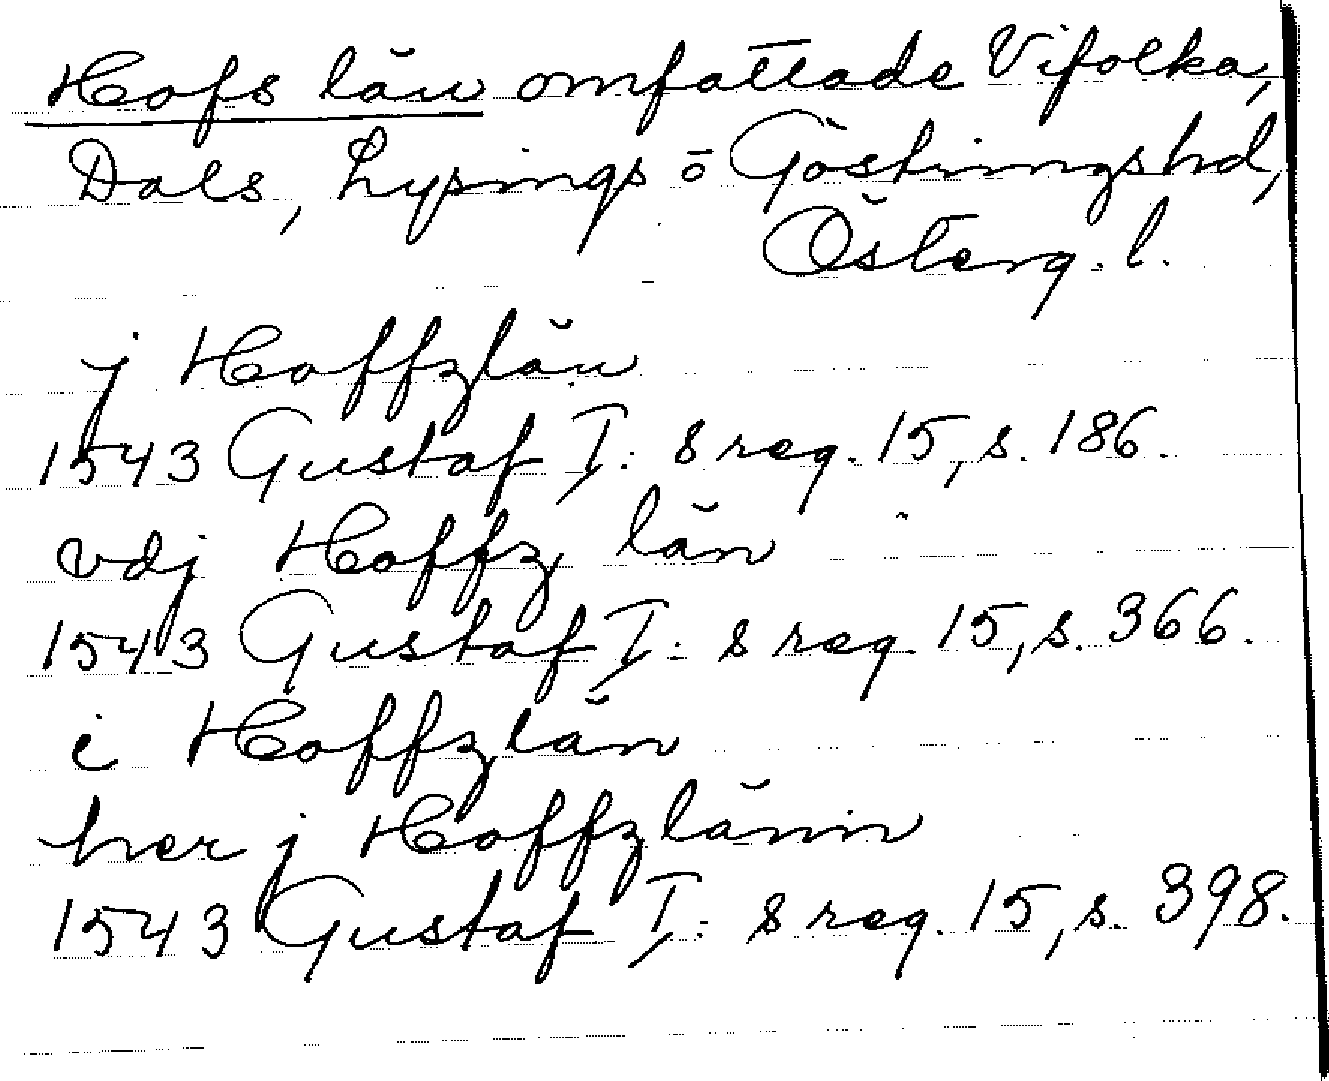 Hofs län omfattade Vifolka,
Dals, Lysings o Göstringshd,
Österg. l.
j Hoffzlän
1543 Gustaf I:s reg. 15, s. 186.
vdj Hoffz län
1543 Gustaf I:s reg. 15, s. 366.
i Hoffzlän
her j Hoffzlänn
1543 Gustaf I:s reg. 15, s. 398.